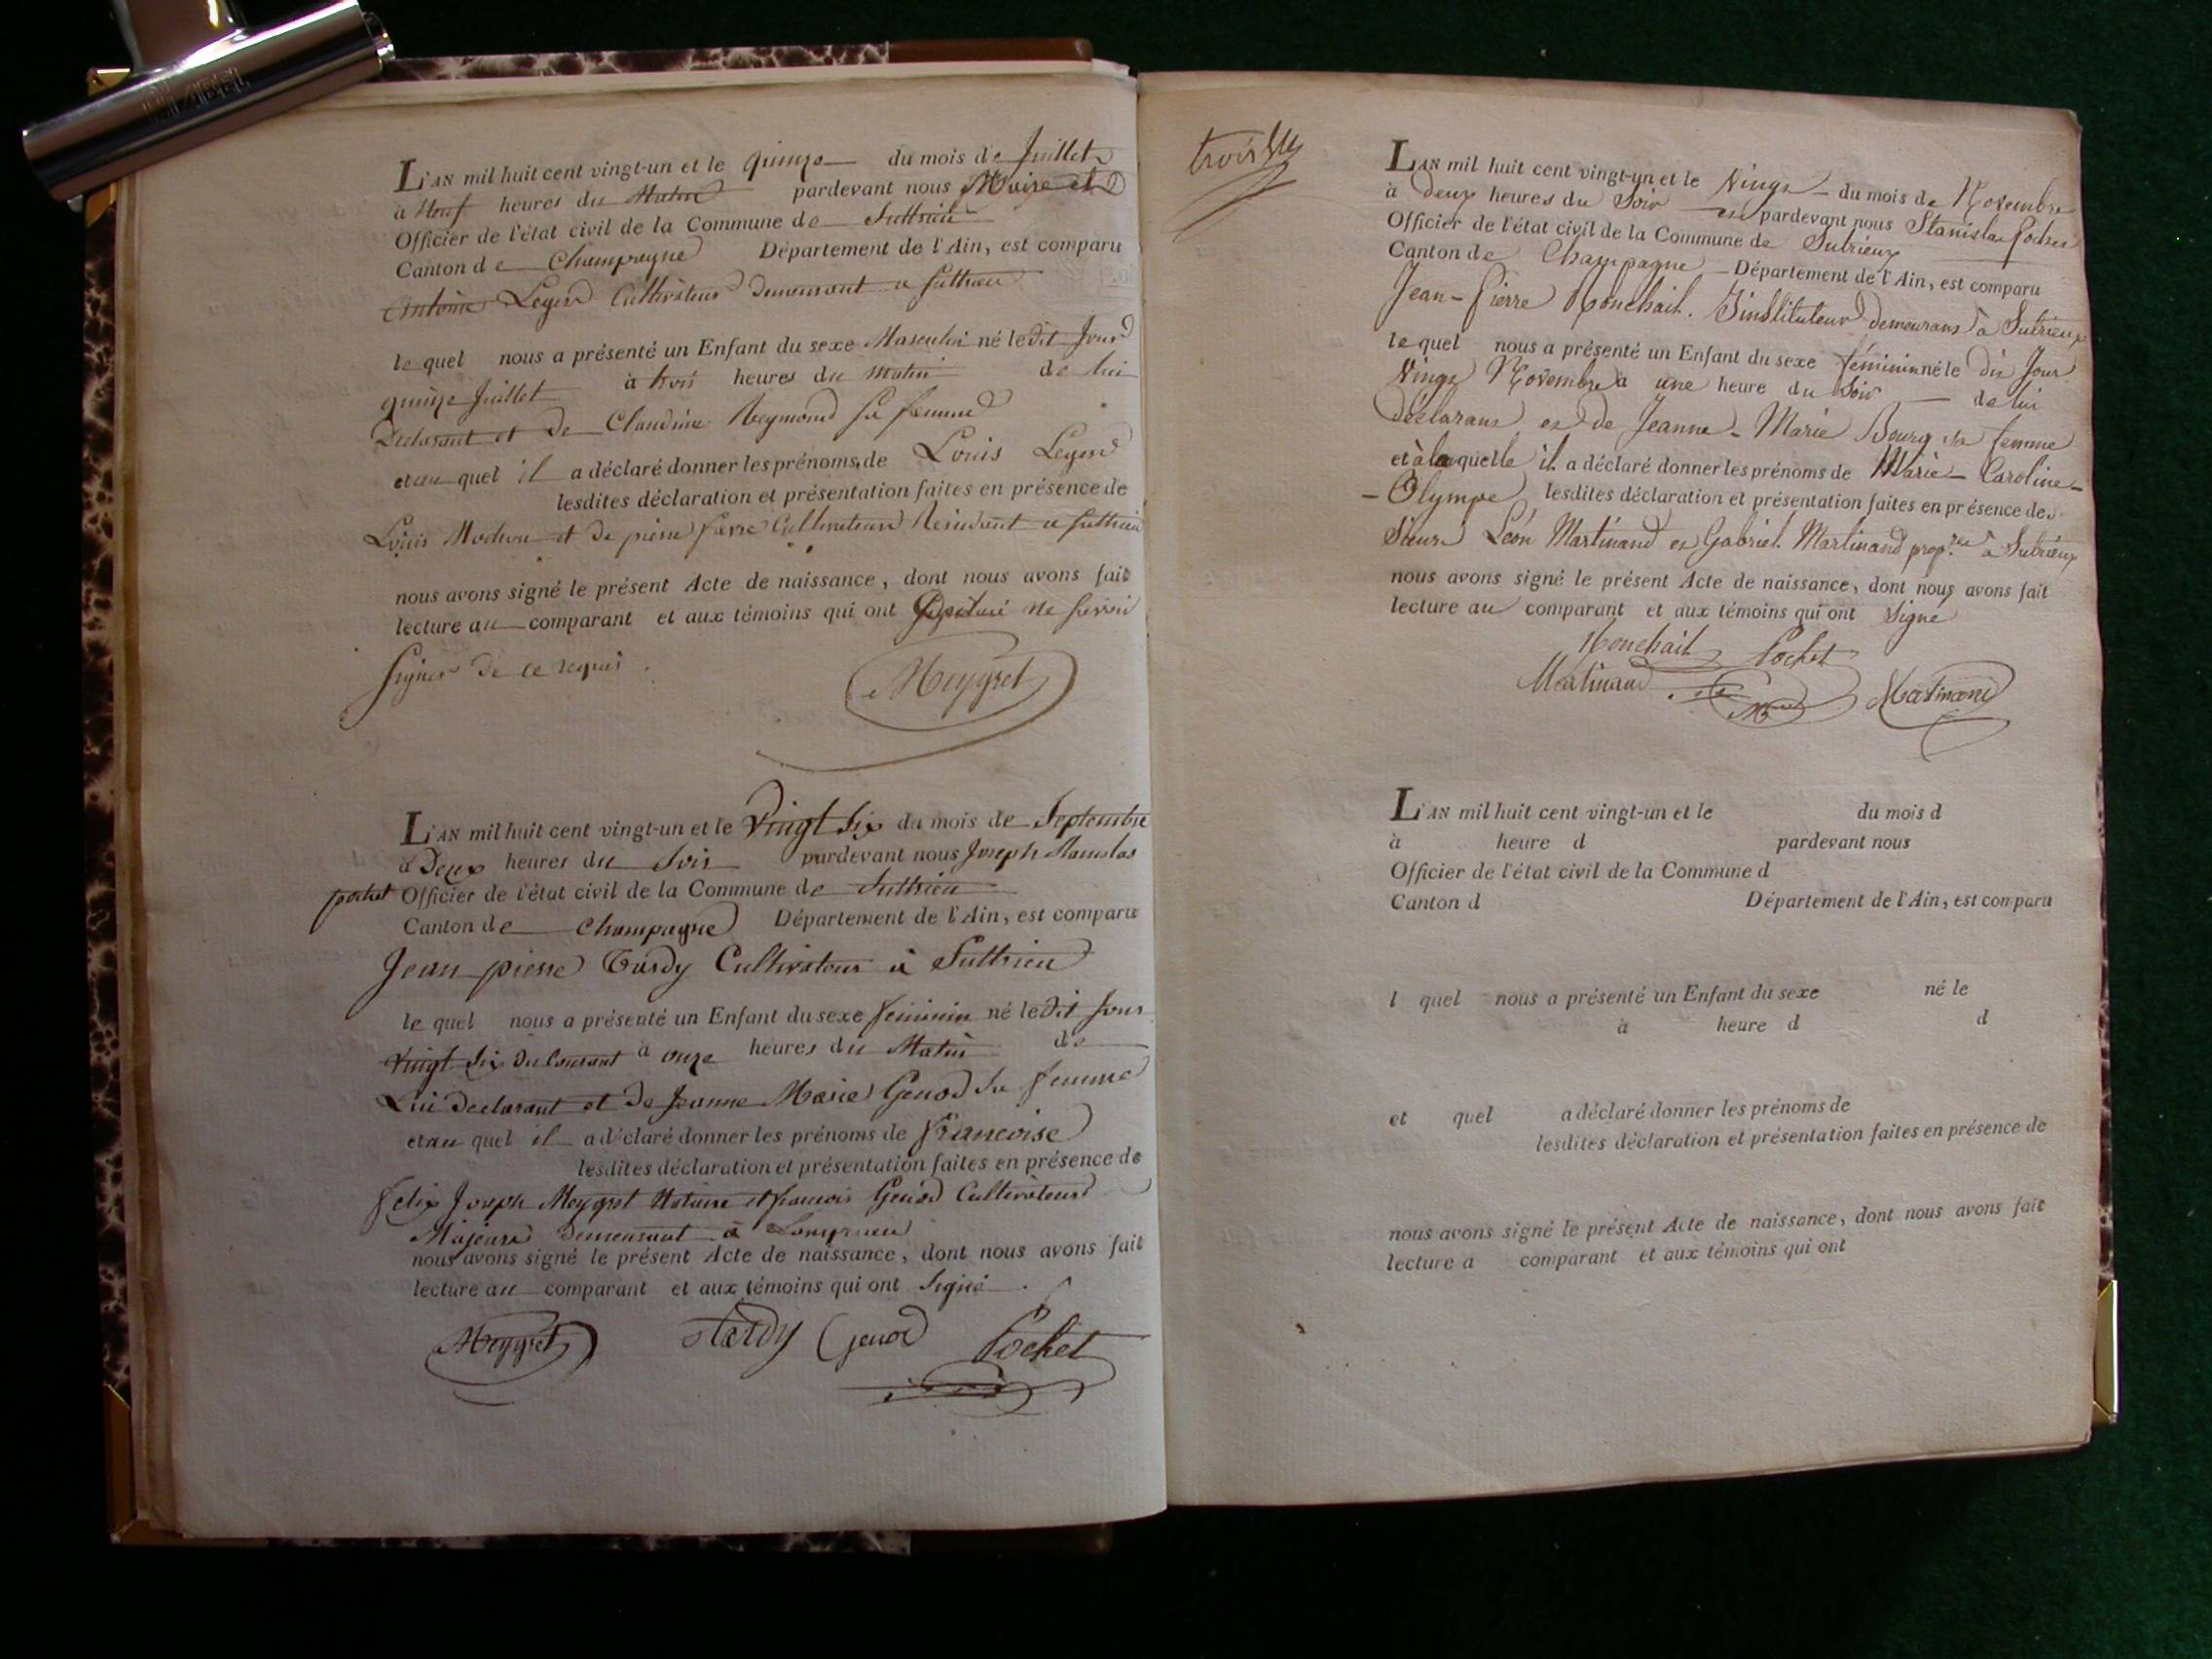 L'AN mil huit cent vingt-un et le quinze du mois de Juillet
à Neuf heures du Matin pardevant nous Maire et
Officier de l'état civil de la Commune de Suttrieu
Canton de Champagne Département de l'Ain, est comparu
Antoine Cultivateur demeurant a Suttrieu
le quel nous a présenté un Enfant du sexe Masculin né le dit Jour
quinze Juillet à trois heures du matin de lui
Declarant et de Claudine Reymond sa femme
et au quel il a déclaré donner les prénoms de Louis
lesdites déclaration et présentation faites en présence de
Louis et de pierre Cultivateurs Residant a Suttrieu
nous avons signé le présent Acte de naissance, dont nous avons fait
lecture au comparant et aux témoins qui ont ne savoir
signer de ce requis.
Meygret
L'AN mil huit cent vingt-un et le Vingt Six du mois de Septembre
à Deux heures du Soir pardevant nous Joseph Stanislas
pochet Officier de l'état civil de la Commune de Suttrieu
Canton de Champagne Département de l'Ain, est comparu
Jean pierre Tardy Cultivateur à Suttrieu
le quel nous a présenté un Enfant du sexe feminin né le dit Jour
vingt Six du Courant à onze heures du Matin de
Lui declarant et de Jeanne Marie Genod sa femme
et au quel il a déclaré donner les prénoms de francoise
lesdites déclaration et présentation faites en présence de
felix Joseph Meygret Notaire et francois Genod Cultivateur
Majeurs demeurant à
nous avons signé le présent Acte de naissance, dont nous avons fait
lecture au comparant et aux témoins qui ont signé.
Meygret tardy Genod Pochet
L'AN mil huit cent vingt-un et le Vingt du mois de Novembre
à deux heures du Soir pardevant nous Stanislas Pochet
Officier de l'état civil de la Commune de Sutrieux
Canton de Champagne Département de l'Ain, est comparu
Jean-Pierre demeurant à Sutrieux
le quel nous a présenté un Enfant du sexe féminin né le dit Jour
Vingt Novembre à une heure du Soir de lui
déclarant et de Jeanne-Marie Bourg sa femme
et à la quelle il a déclaré donner les prénoms de Marie-Caroline-
-Olympe lesdites déclaration et présentation faites en présence des
Sieurs Léon Martinand et Gabriel Martinand prop.res à Sutrieux
nous avons signé le présent Acte de naissance, dont nous avons fait
lecture au comparant et aux témoins qui ont Signé
Pochet
Martinand Martinand
L'AN mil huit cent vingt-un et le du mois d
à heure d pardevant nous
Officier de l'état civil de la Commune d
Canton d Département de l'Ain, est comparu
l quel nous a présenté un Enfant du sexe né le
à heure d d
et quel a déclaré donner les prénoms de
lesdites déclaration et présentation faites en présence de
nous avons signé le présent Acte de naissance, dont nous avons fait
lecture a comparant et aux témoins qui ont